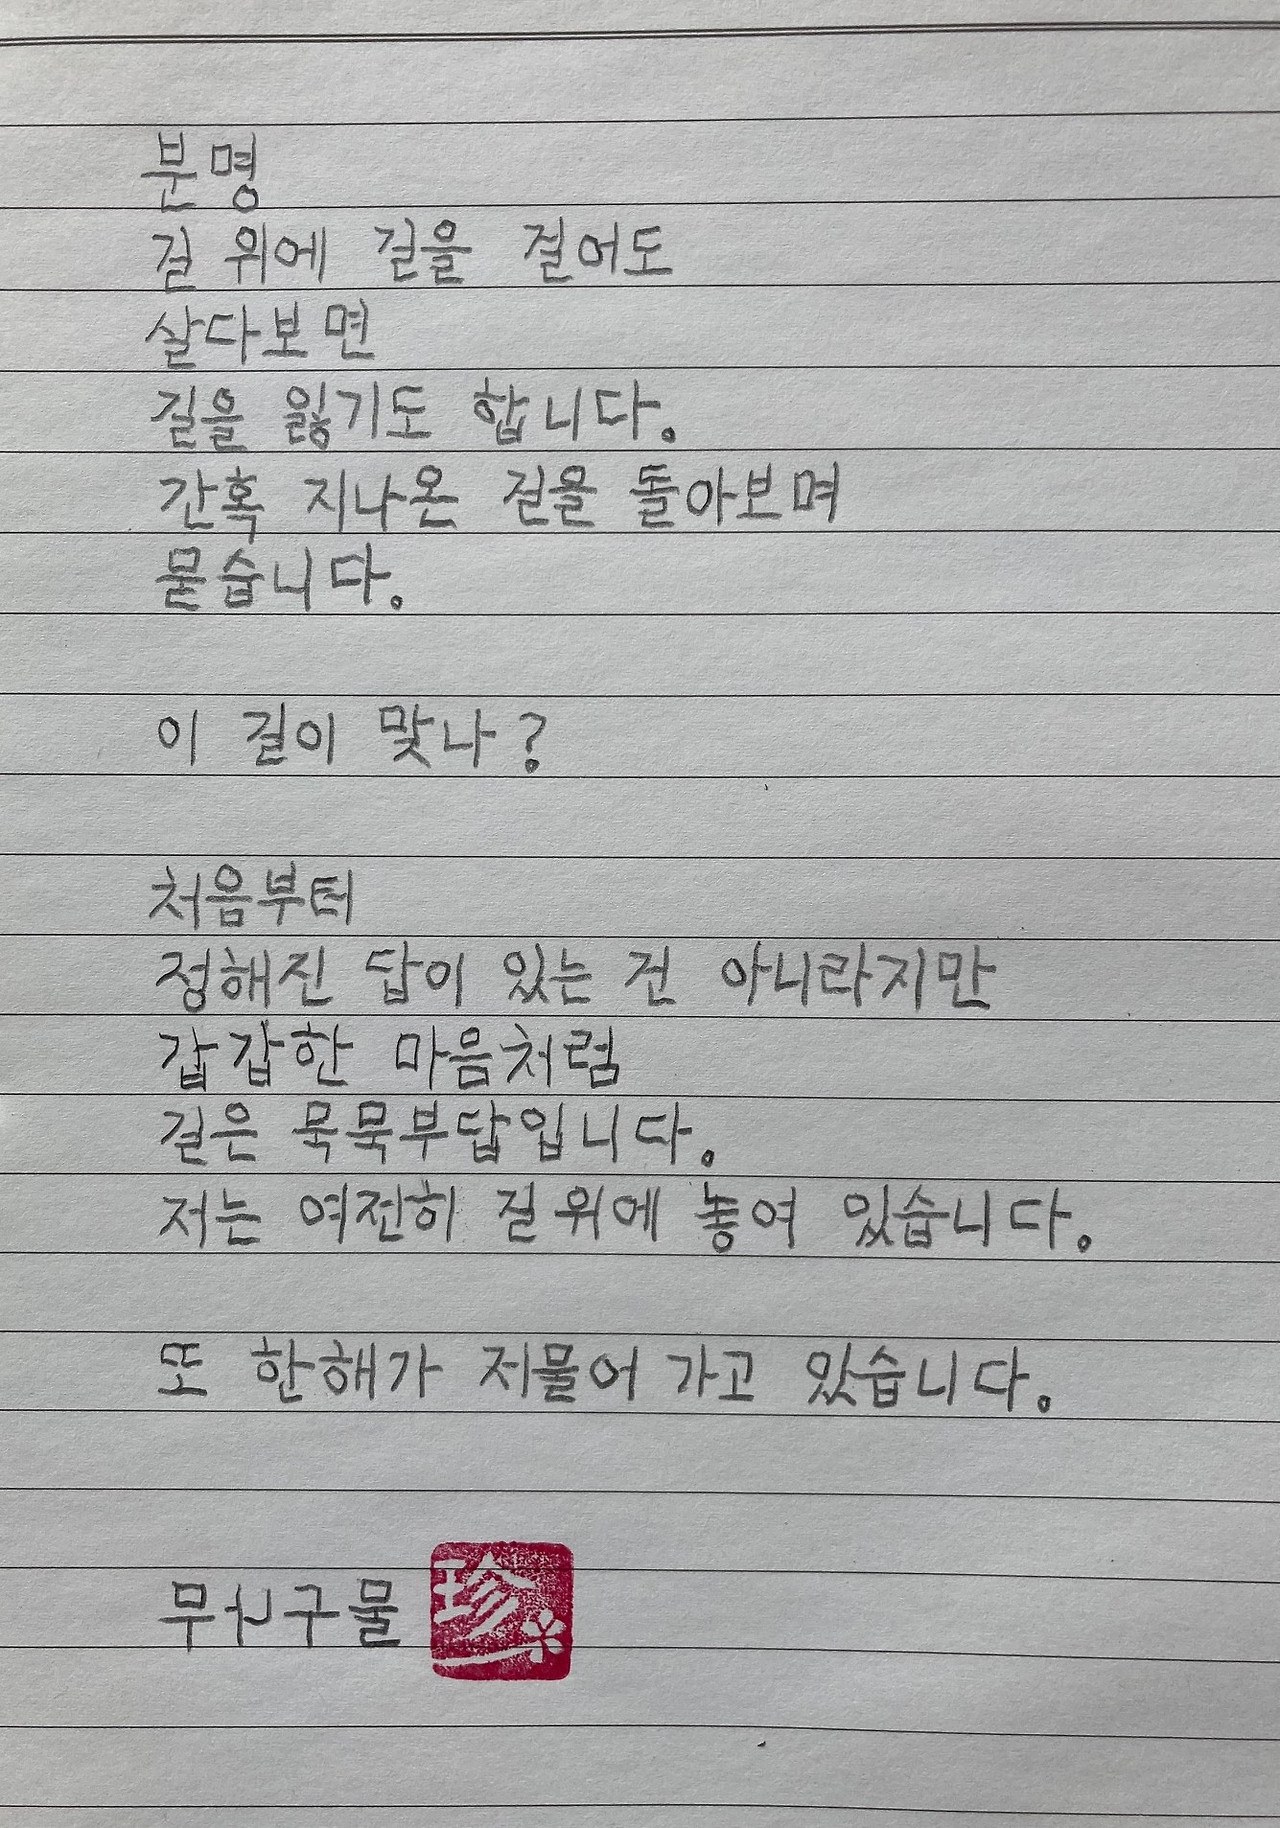 분명
길 위에 길을 걸어도
살다보면
길을 잃기도 합니다.
간혹 지나온 길을 돌아보며
묻습니다.
이 길이 맞나?
처음부터
정해진 답이 있는 건 아니라지만
갑갑한 마음처럼
길은 묵묵부답입니다.
저는 여전히 길 위에 놓여 있습니다.
또 한해가 저물어 가고 있습니다.
珍